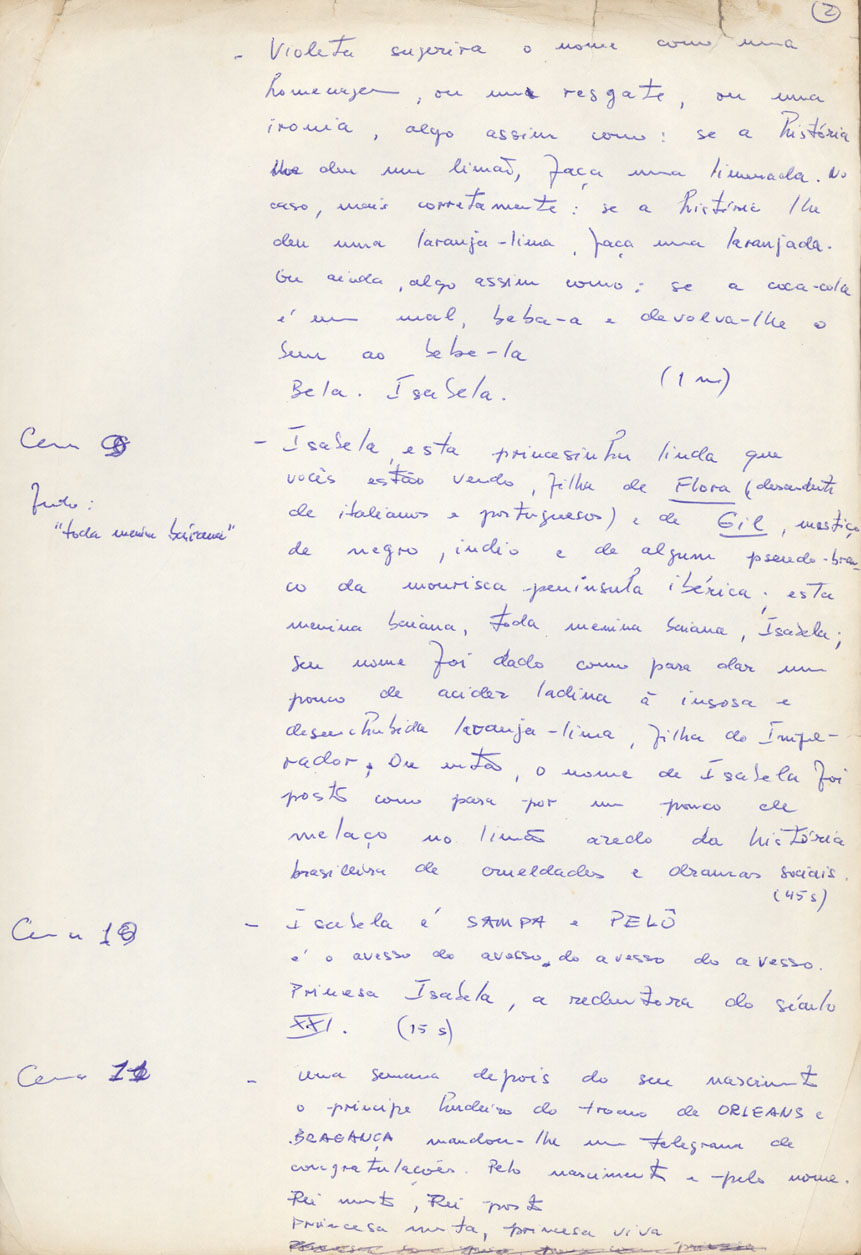 2
- Violeta sugerira o nome como uma
homenagem, ou um resgate, ou uma
ironia, algo assim como: se a história
lhe deu um limão, faça uma limonada. No
caso, mais corretamente: se a história lhe
deu uma laranja-lima, faça uma laranjada.
Ou ainda, algo assim como: se a coca-cola
é um mal, beba-a e devolva-lhe o
bem ao bebê-la
Bela. Isabela. (1 m)
Cena 9 - Isabela, esta princesinha linda que
vocês estão vendo, filha de Flora (descendente
Fundo: de italianos e portugueses) e de Gil, mestiço
"toda menina baiana" de negro, índio e de algum pseudo-bran-
co da mourisca península ibérica; esta
menina baiana, toda menina baiana, Isabela;
seu nome foi dado como para dar um
pouco de acidez ladina à insosa e
desenchabida laranja-lima, filha do Impe-
rador. Ou então, o nome de Isabela foi
posto como para por um pouco de
melaço no limão azedo da história
brasileira de crueldades e dramas sociais.
(45 s)
Cena 10 - Isabela é SAMPA e PELÔ
é o avesso do avesso do avesso do avesso.
Princesa Isabela, a redentora do século
XXI. (15 s)
Cena 11 - Uma semana depois do seu nascimento
o príncipe herdeiro do trono de ORLEANS e
BRAGANÇA mandou-lhe um telegrama de
congratulações. Pelo nascimento e pelo nome.
Rei morto, Rei posto
Princesa morta, princesa viva